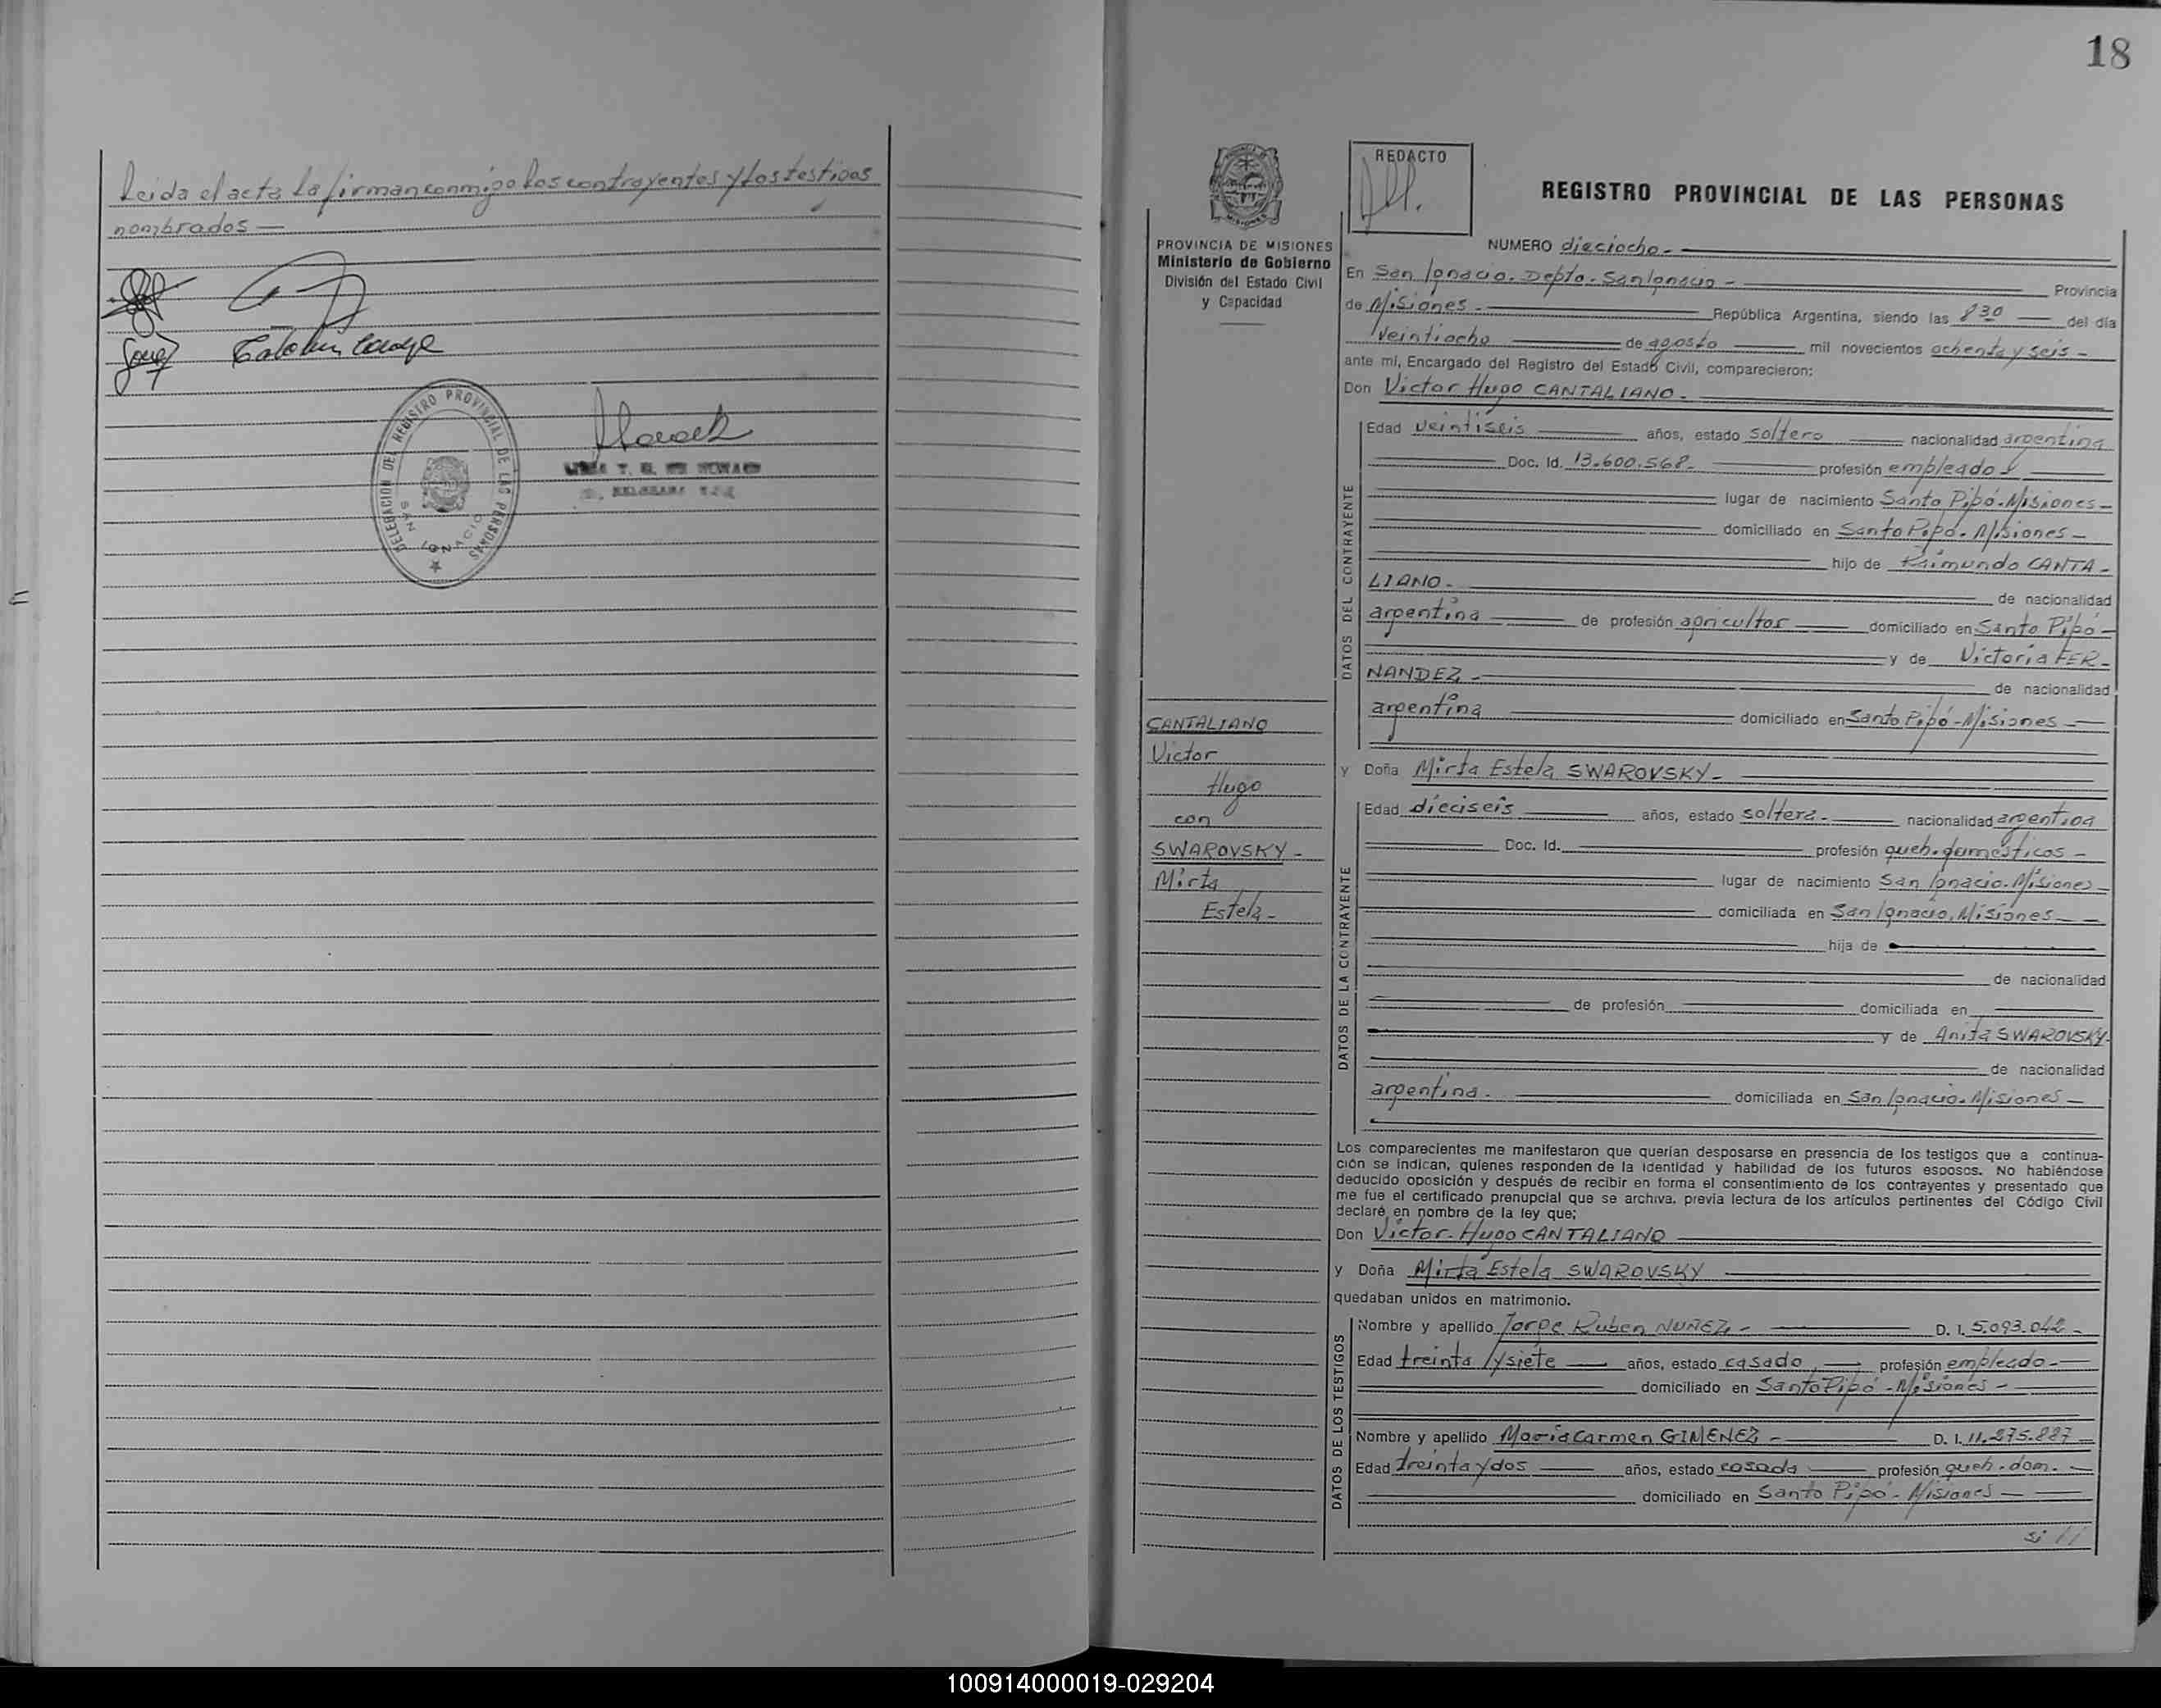 Leida el acta la firman conmigo los contrayentes y los testigos
nombrados —
DELEGACION DEL REGISTRO PROVINCIAL DE LAS PERSONAS
SAN IGNACIO
18
REDACTO
REGISTRO PROVINCIAL DE LAS PERSONAS
MISIONES
PROVINCIA DE MISIONES
Ministerio de Gobierno
División del Estado Civil
y Capacidad
NUMERO dieciocho.-
En San Ignacio. Depto. San Ignacio - Provincia
de Misiones.- República Argentina, siendo las 8 30 del día
veintiocho de agosto mil novecientos ochenta y seis -
ante mí, Encargado del Registro del Estado Civil, comparecieron:
Don Victor Hugo CANTALIANO.-
DATOS DEL CONTRAYENTE
Edad veintiseis años, estado soltero nacionalidad argentina
Doc. Id. 13.600.568.- profesión empleado
lugar de nacimiento Santo Pipó-Misiones-
domiciliado en Santo Pipó. Misiones-
hijo de Raimundo CANTA-
LIANO.- de nacionalidad
argentina de profesión agricultor domiciliado en Santo Pipó-
y de Victoria FER-
NANDEZ.- de nacionalidad
argentina domiciliado en Santo Pipó-Misiones-
CANTALIANO
Victor
Hugo
con
SWAROVSKY-
Mirta
Estela-
y Doña Mirta Estela SWAROVSKY-
DATOS DE LA CONTRAYENTE
Edad dieciseis años, estado soltera- nacionalidad argentina
Doc. Id. profesión queh. domésticos-
lugar de nacimiento San Ignacio. Misiones-
domiciliada en San Ignacio, Misiones-
hija de
de nacionalidad
de profesión domiciliada en
y de Anita SWAROVSKY-
de nacionalidad
argentina. domiciliada en San Ignacio. Misiones-
Los comparecientes me manifestaron que querían desposarse en presencia de los testigos que a continua-
ción se indican, quienes responden de la identidad y habilidad de los futuros esposos. No habiéndose
deducido oposición y después de recibir en forma el consentimiento de los contrayentes y presentado que
me fue el certificado prenupcial que se archiva. previa lectura de los artículos pertinentes del Código Civil
declaré en nombre de la ley que;
Don Victor Hugo CANTALIANO
y Doña Mirta Estela SWAROVSKY
quedaban unidos en matrimonio.
DATOS DE LOS TESTIGOS
Nombre y apellido Jorge Ruben NUÑEZ- D. I. 5.093.042-
Edad treinta y siete años, estado casado profesión empleado-
domiciliado en Santo Pipó-Misiones-
Nombre y apellido Maria Carmen GIMENEZ- D. I. 11.275.887
Edad treinta y dos años, estado casada profesión queh. dom.
domiciliado en Santo Pipó-Misiones-
100914000019-029204